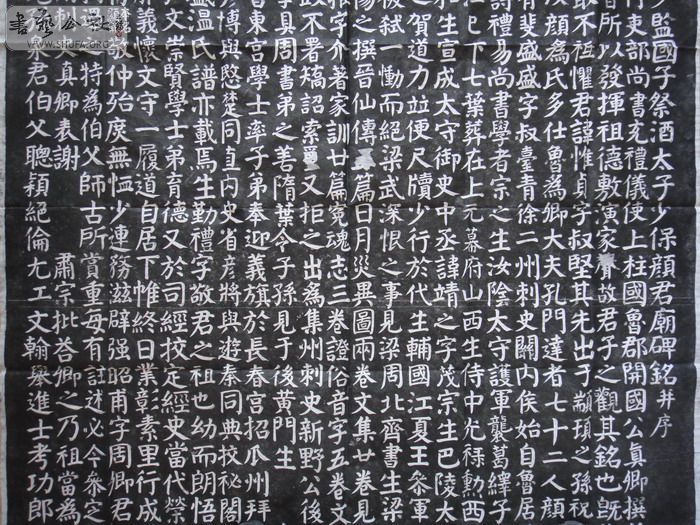 監國子祭酒太子少保顏君廟碑銘并序
行吏部尚書充禮儀使上柱國魯郡開國公真卿撰
昔所以發揮祖德敷演家聲故君子之觀其銘也既
敢不祖懼君諱惟貞字叔堅其先出于顓頊之孫祝
以顏為氏多仕魯為卿大夫孔門達者七十二人顏
有斐盛盛字叔臺青徐二州刺史關內侯始自魯居
詩禮易尚書學者宗之生汝陰太守護軍襲葛繹子
已下七葉葬在上元幕府山西生侍中光祿勳西
和生宣成太守御史中丞諱靖之字茂宗生巴陵太
之賀道力並便尺牘少行於代生輔國江夏王參軍
被弒一慟而絕梁武深恨之事見梁周北齊書生梁
陽之撰晉仙傳篇日月災異圖兩卷文集廿卷見
字介著家訓廿篇冤魂志三卷證俗音字五卷文
政不署矯詔索又拒之出為集州刺史新野公後
學具周書弟之善隋葉令子孫見于後黃門生
東宮學士率子弟奉迎義旗於長春宮招瓜州拜
彥博與愍楚同直內史省彥將與遊秦同典校祕閣
盛溫氏譜亦載焉生勤禮字敬君之祖也幼而朗悟
文崇賢學士弟育德又於司經校定經史當代榮
義懷文守一履道自居下帷終日業彰素里行成
敬仲殆庶無恤少連務滋辟強昭甫字周卿君
特為伯父師古所賞重每有註述必令參定
真卿表謝 肅宗批答卿之乃祖當為
君伯父聰穎絕倫尤工文翰舉進士考功郎
書藝公社
WWW.SHUFA.ORG